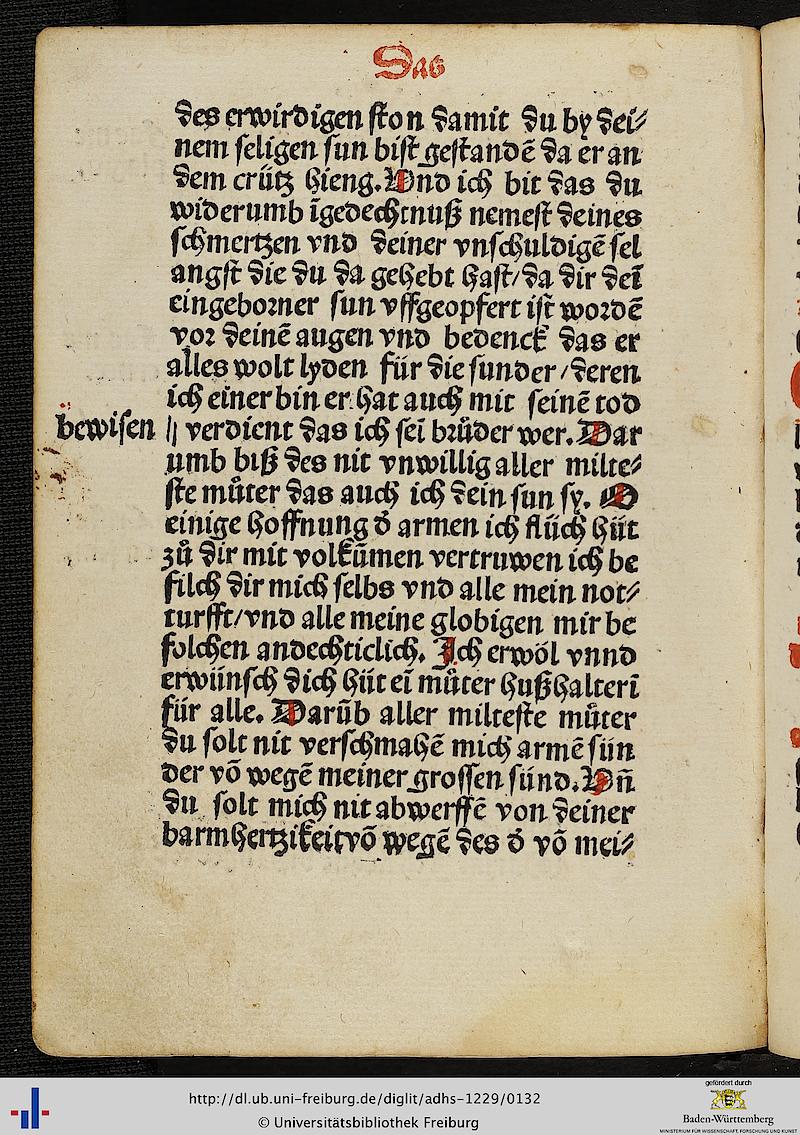 Das
des erwirdigen ston damit du by dei⸗
nem seligen sun bist gestandē da er an
dem crütz hieng. Vnd ich bit das du
widerumb īgedechtnuß nemest deines
schmertzen vnd deiner vnschuldigē sel
angst die du da gehebt hast/da dir deī
eingeborner sun vffgeopfert ist wordē
vor deinē augen vnd bedenck das er
alles wolt lyden für die sunder/deren
ich einer bin er hat auch mit seinē tod
bewisen || verdient das ich seī brůder wer. Dar
umb biß des nit vnwillig aller milte⸗
ste můter das auch ich dein sun sy. O
einige hoffnung d̓ armen ich flüch hüt
zů dir mit volkūmen vertruwen ich be
filch dir mich selbs vnd alle mein not⸗
turfft/vnd alle meine globigen mir be
folchen andechticlich. Ich erwöl vnnd
erwünsch dich hüt eī můter hußhalterī
für alle. Darūb aller milteste můter
du solt nit verschmahē mich armē sün
der vō wegē meiner grossen sünd. Vn̄
du solt mich nit abwerffē von deiner
barmhertzikeit vō wegē des d̓ vō mei⸗
http://dl.ub.uni-freiburg.de/diglit/adhs-1229/0132
© Universitätsbibliothek Freiburg
gefördert durch
Baden-Württemberg
MINISTERIUM FÜR WISSENSCHAFT, FORSCHUNG UND KUNST